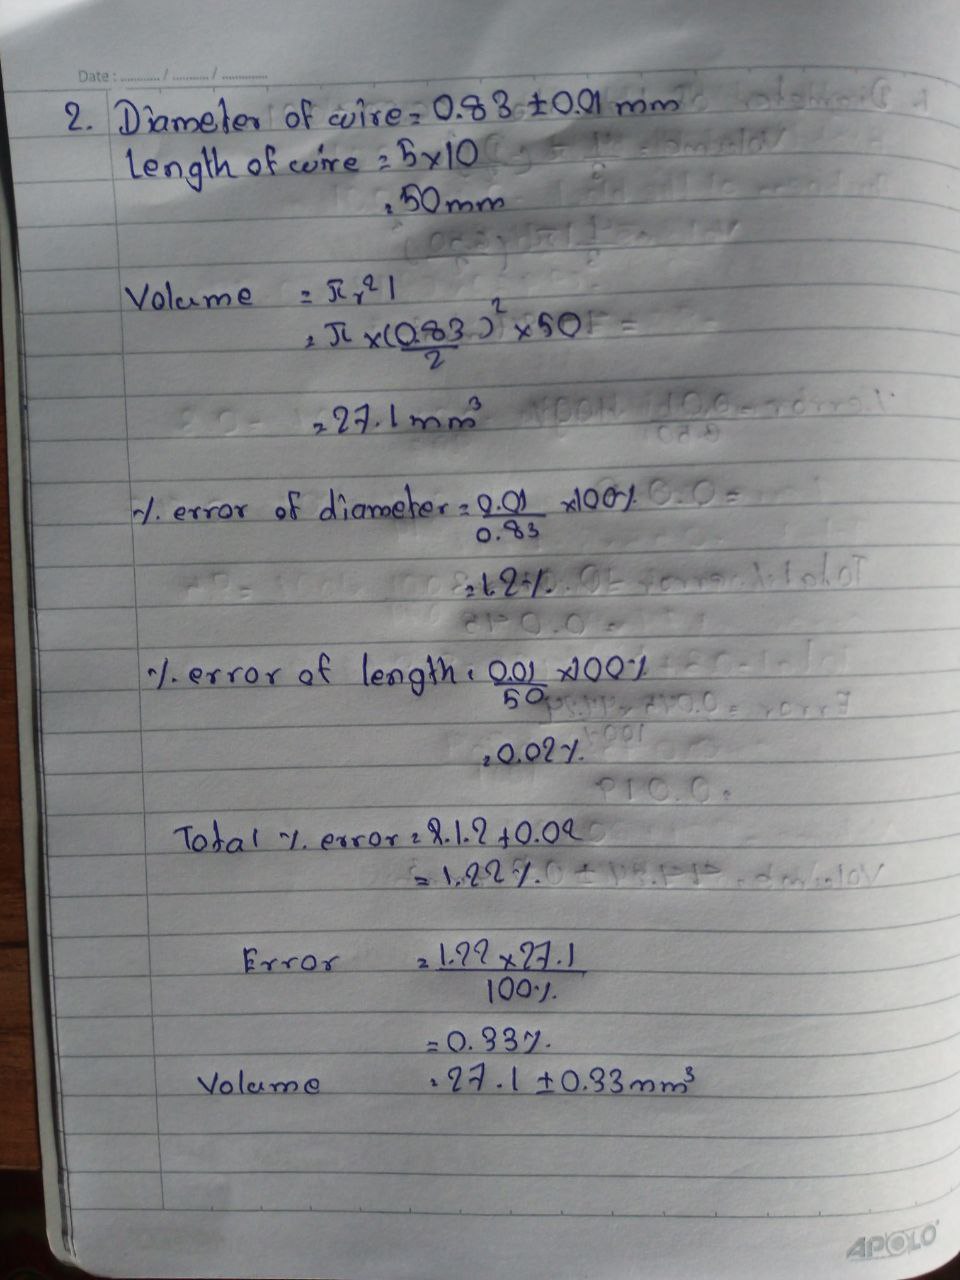 Date : ........... / .......... / .............
2. Diameter of wire = 0.83 ± 0.01 mm
Length of wire = 5x10
= 50mm
Volume = πr²l
= π x(0.83/2)² x50
= 27.1 mm³
% error of diameter = 0.01/0.83 x100%
= 1.2%
% error of length = 0.01/50 x100%
= 0.02%
Total % error = 1.2 + 0.02
= 1.22%
Error = 1.22 x 27.1/100%
= 0.33%
Volume = 27.1 ± 0.33mm³
APOLO